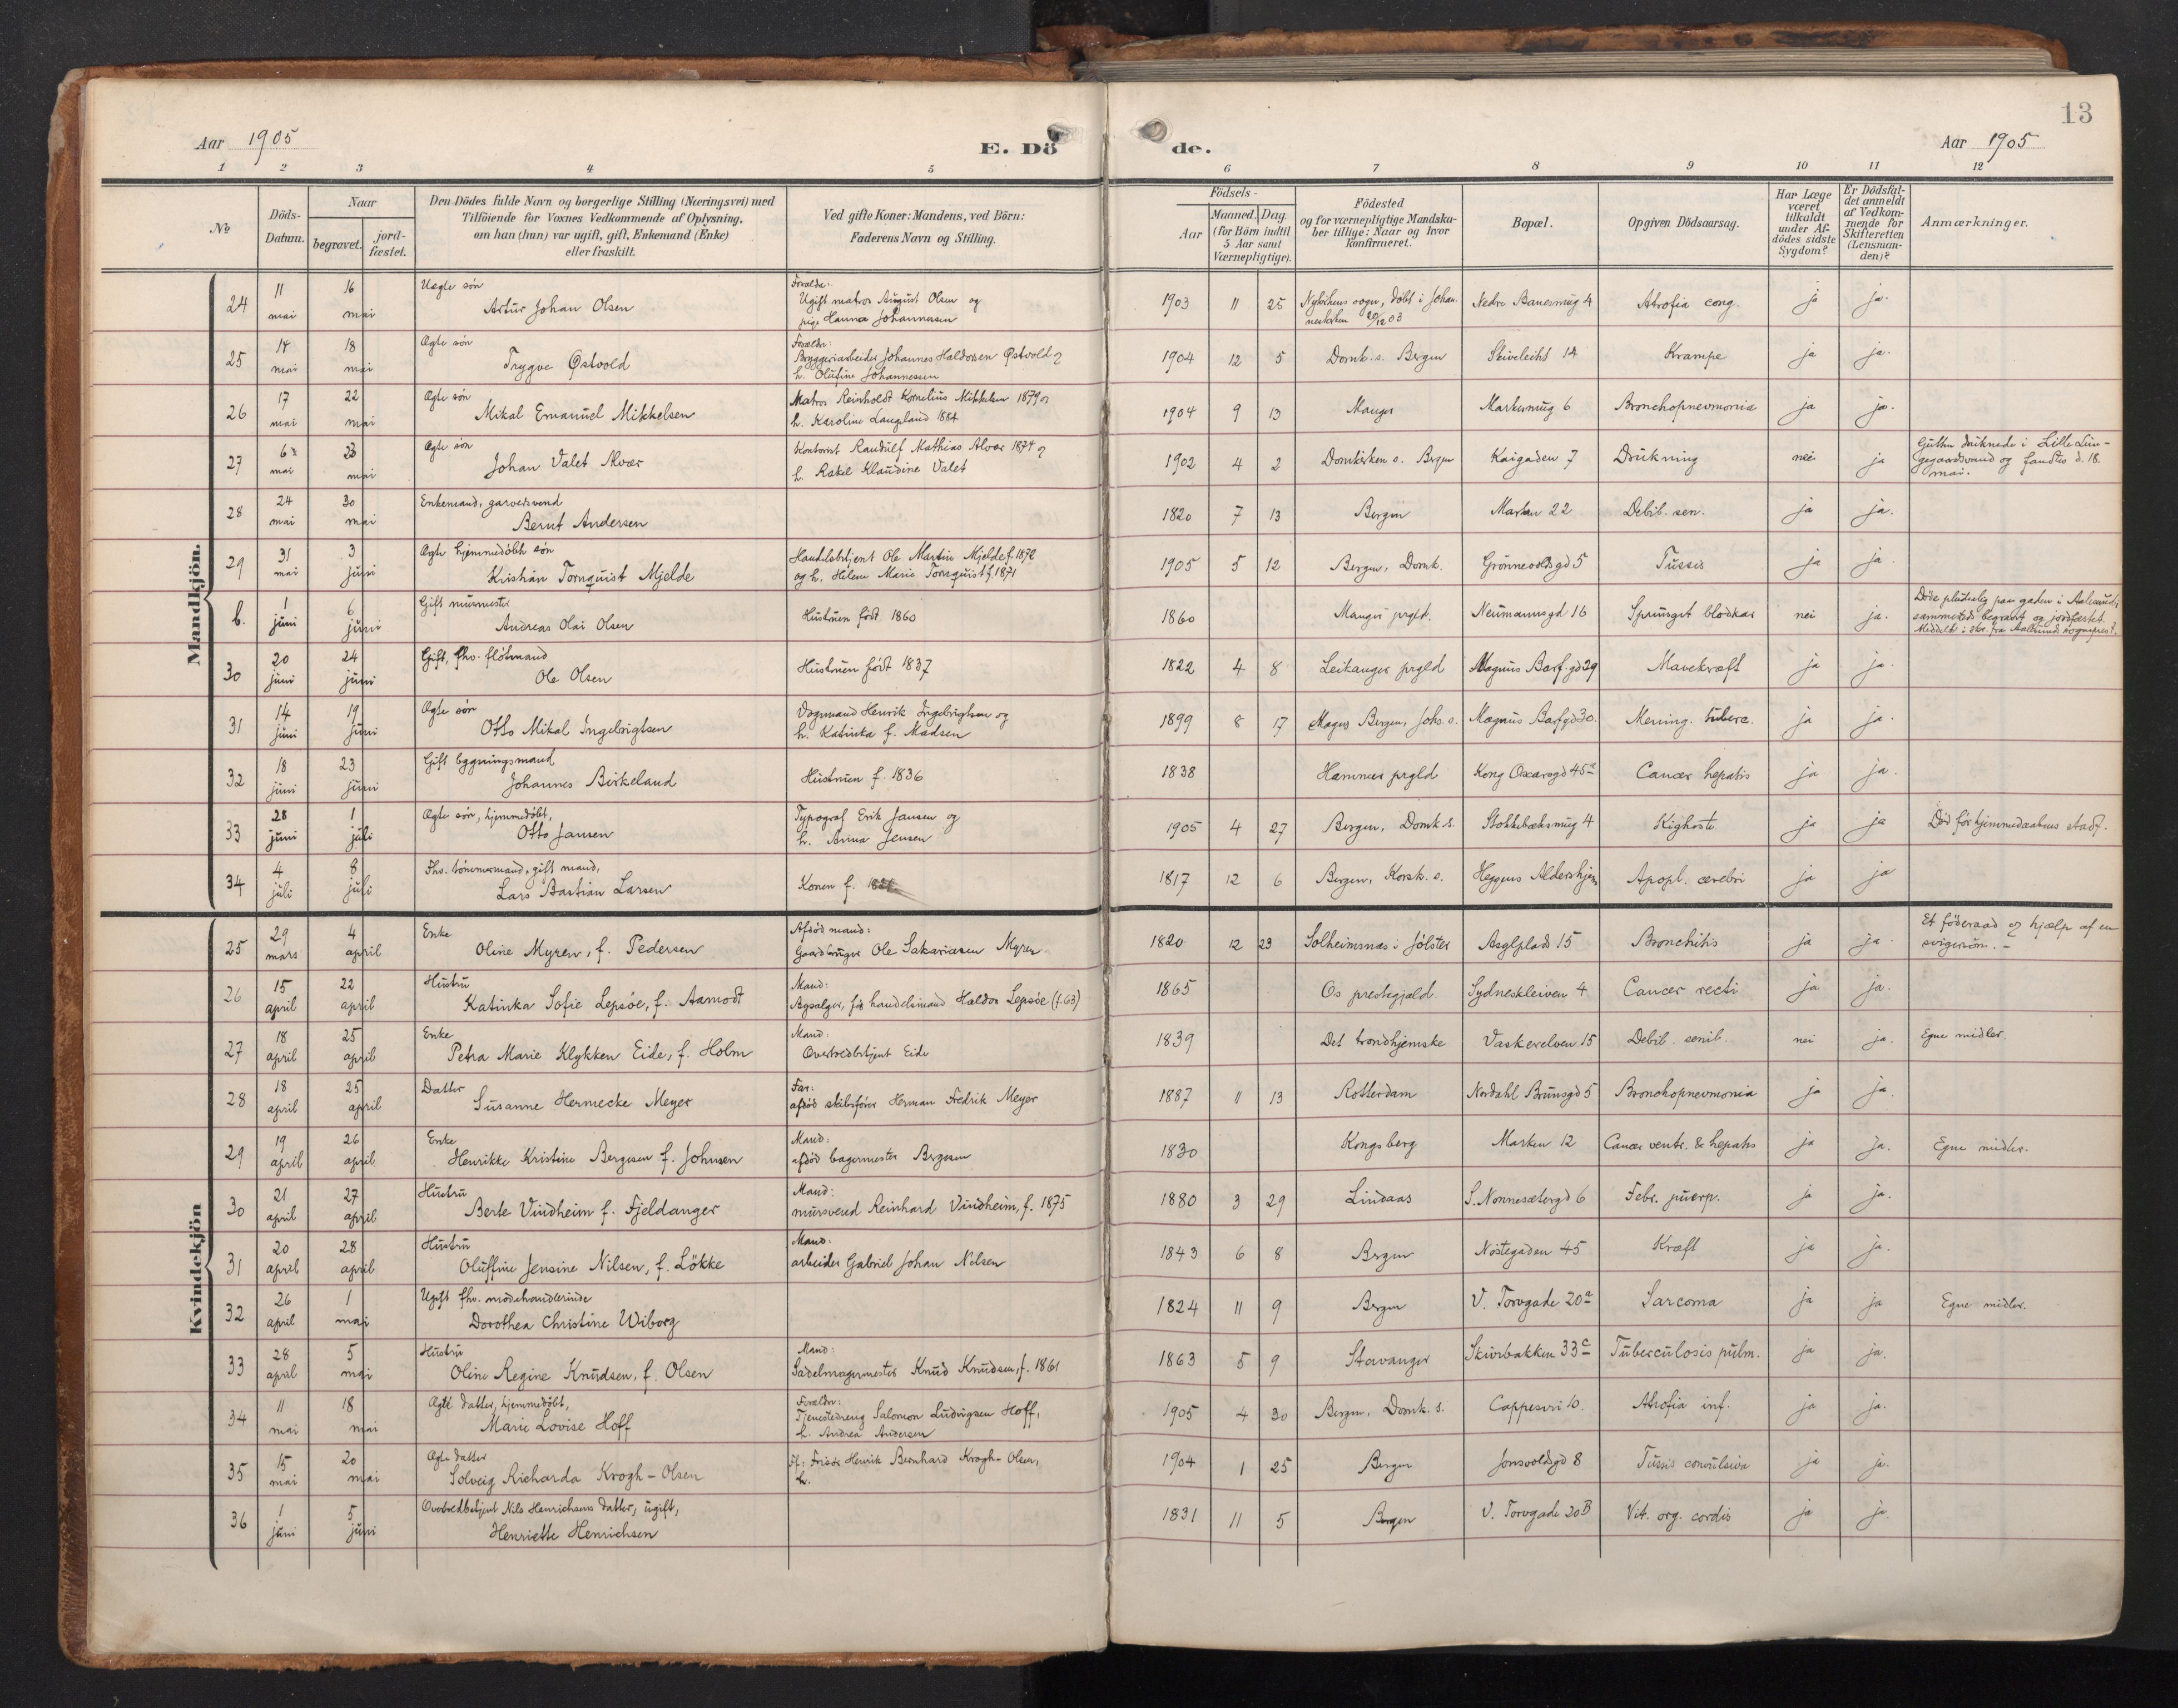 13
Aar 1905
E. Dö de.
Aar 1905
1 2 3 4 5 6 7 8 9 10 11 12
No
Döds-Datum.
Naar
begravet. jord-fæstet.
Den Dödes fulde Navn og borgerlige Stilling (Næringsvei) med
Tilföiende for Voxnes Vedkommende af Oplysning,
om han (hun) var ugift, gift, Enkemand (Enke)
eller fraskilt.
Ved gifte Koner: Mandens, ved Börn:
Faderens Navn og Stilling.
Födsels-
Aar
Maaned. Dag.
(for Börn indtil
5 Aar samt
Værnepligtige).
Födested
og for værnepligtige Mandska-
ber tillige: Naar og hvor
konfirmeret.
Bopæl.
Opgiven Dödsaarsag.
Har Læge
været
tilkaldt
under Af-
dödes sidste
Sygdom?
Er Dödsfal-
det anmeldt
af Vedkom-
mende for
Skifteretten
(Lensman-
den)?
Anmærkninger.
Mandkjön.
24 11 mai 16 mai Uægte søn
Artur Johan Olsen
Forældr:
Ugift matros August Olsen og
pige Hanna Johannessen
1903 11 25 Nykirkens sogn, døbt i Johan
neskirken 20/12 03
Nedre Banesmug 4 Atrofia cong. ja ja.
25 14 mai 18 mai Ægte søn
Trygve Østvold
Forældr:
Bryggeriarbeider Johannes Haldorsen Østvold og
h. Olufine Johannessen
1904 12 5 Domk. s. Bergen 14 Krampe ja ja.
26 17 mai 22 mai Ægte søn
Mikal Emanuel Mikkelsen
Matros Reinholdt Kornelius Mikkelsen 1879 og
h. Karoline Langland 1884
1904 9 13 Manger Markesmug 6 Bronchopnevmonia ja ja.
27 6 mai 23 mai Ægte søn
Johan Valet Alvær
Kontorist Randulf Mathias Alvær 1874 og
h. Rakel Klaudine Valet
1902 4 2 Domkirken s. Bergen Kaigaden 7 Drukning nei ja
Gutten druknede i Lille Lun-
gegaardsvand og fandtes d. 18.
mai.
28 24 mai 30 mai Enkemand, garversvend
Bernt Andersen
1820 7 13 Bergen Marken 22 Debil. sen. ja ja.
29 31 mai 3 juni Ægte hjemmedøbt søn
Kristian Tornquist Mjelde
Handelsbetjent Ole Martin Mjelde f. 1872
og h. Helene Marie Tornquist f. 1871
1905 5 12 Bergen, Domk. Grønnevoldsgd 5 Tussis ja ja.
b. 1 juni 6 juni Gift murmester
Andreas Olai Olsen
Hustruen født 1860
1860 Manger prgld. Neumannsgd 16 Sprunget blodkar nei ja.
Døde pludselig paa gaden i Aalesund,
sammesteds begravet og jordfæstet.
Meddelt i skr. fra Aalesunds sogneprest.
30 20 juni 24 juni Gift, fhv. fløtmand
Ole Olsen
Hustruen født 1837
1822 4 8 Leikanger prgld Magnus Barf.gd 29 Mavekræft ja ja.
31 14 juni 19 juni Ægte søn
Otto Mikal Ingebrigtsen
Vognmand Henrik Ingebrigtsen og
h. Katinka f. Madsen
1899 8 17 Bergen, Johs. s. Magnus Barfgd 30. Mening. tuberc. ja ja.
32 18 juni 23 juni Gift bygningsmand
Johannes Birkeland
Hustruen f. 1836
1838 Hammer prgld Kong Oscarsgd 45a Cancer hepatis ja ja.
33 28 juni 1 juli Ægte søn, hjemmedøbt,
Otto Jansen
Typograf Erik Jansen og
h. Anna Jensen
1905 4 27 Bergen, Domk s. Stokkebæksmug 4 Kighoste ja ja
Død før hjemmedaabens stadf.
34 4 juli 8 juli Fhv. tømmermand, gift mand,
Lars Bastian Larsen
Konen f.
1817 12 6 Bergen, Korsk. s. Heggens Aldershjem Apopl. cerebri ja ja
Kvindekjön
25 29 mars 4 april Enke
Oline Myren, f. Pedersen
Afdød mand:
Gaardbruger Ole Sakariasen Myren
1820 12 23 Solheimsnes i Jølster Asylplads 15 Bronchitis ja ja.
Et føderaad og hjælp af en
svigersøn. –
26 15 april 22 april Hustru
Katinka Sofie Lepsøe, f. Aamodt
Mand:
Bysælger, før handelsmand Haldor Lepsøe (f. 63)
1865 Os prestegjæld. Sydneskleiven 4 Cancer recti ja ja.
27 18 april 25 april Enke
Petra Marie Klykken Eide, f. Holm
Mand:
Overtoldbetjent Eide
1839 Det trondhjemske Vaskerelven 15 Debil. senil. nei ja.
Egne midler.
28 18 april 25 april Datter
Susanne Hermecke Meyer
Far:
afdød skibsfører Herman Fredrik Meyer
1887 11 13 Rotterdam Nordahl Brunsgd 5 Bronchopnevmonia ja ja.
29 19 april 26 april Enke
Henrikke Kristine Bergesen f. Johnsen
Mand:
afdød bagermester Bergesen
1830 Kongsberg Marken 12 Cancer ventr. & hepatis ja ja.
Egne midler.
30 21 april 27 april Hustru
Berte Vindheim f. Fjeldanger
Mand:
mursvend Reinhard Vindheim, f. 1875
1880 3 29 Lindaas S. Nonnesætergd 6 Febr. puerp. ja ja.
31 20 april 28 april Hustru
Oluffine Jensine Nilsen, f. Løkke
Mand:
arbeider Gabriel Johan Nilsen
1843 6 8 Bergen Nøstegaden 45 Kræft ja ja.
32 26 april 1 mai Ugift fhv. modehandlerinde
Dorothea Christine Wiborg
1824 11 9 Bergen V. Torvgade 20a Sarcoma ja ja
Egne midler.
33 28 april 5 mai Hustru
Oline Regine Knudsen, f. Olsen
Mand:
Sadelmagermester Knud Knudsen, f. 1861
1863 5 9 Stavanger Skivebakken 33c Tuberculosis pulm. ja ja.
34 11 mai 18 mai Ægte datter, hjemmedøbt,
Marie Lovise Hoff
Forældre:
Tjenestedreng Salomon Ludvigsen Hoff,
h. Andrea Andersen
1905 4 30 Bergen, Domk. s. Cappesvei 10. Atrofia inf. ja ja.
35 15 mai 20 mai Ægte datter
Solveig Richarda Krogh-Olsen
Ff: Frisør Henrik Bernhard Krogh-Olsen,
h.
1904 1 25 Bergen Jonsvoldsgd 8 Tussis convulsiva ja ja.
36 1 juni 5 juni Overtoldbetjent Nils Henrichsens datter, ugift,
Henriette Henrichsen
1831 11 5 Bergen V. Torvgade 20B Vit. org. cordis ja ja.